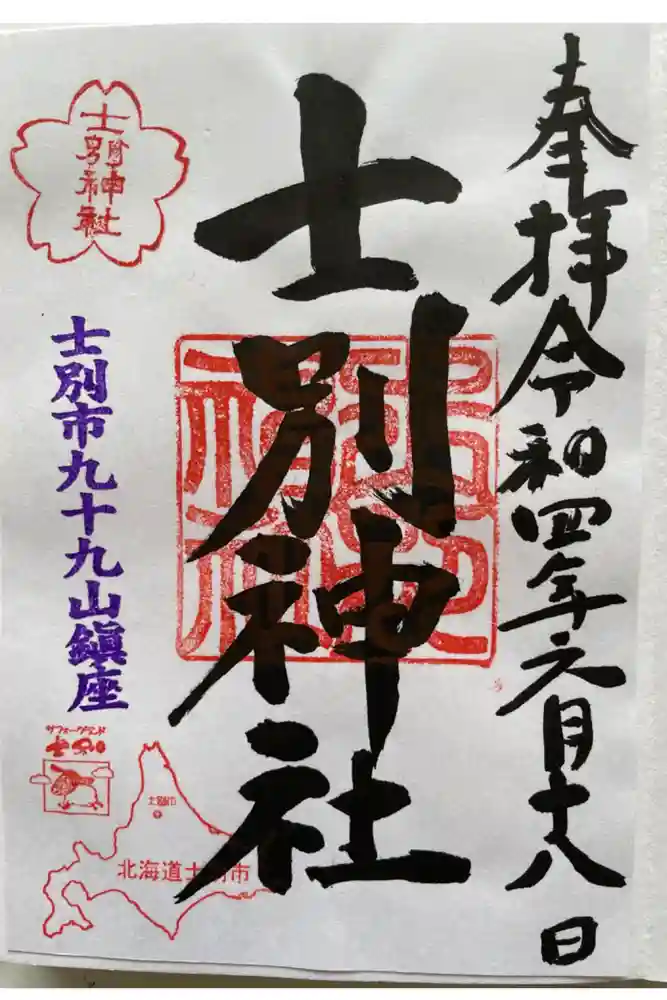 奉拝 令和四年元月十八日
士別神社
士別神社
士別市九十九山鎮座
サフォークランド
士別
士別市
北海道士別市